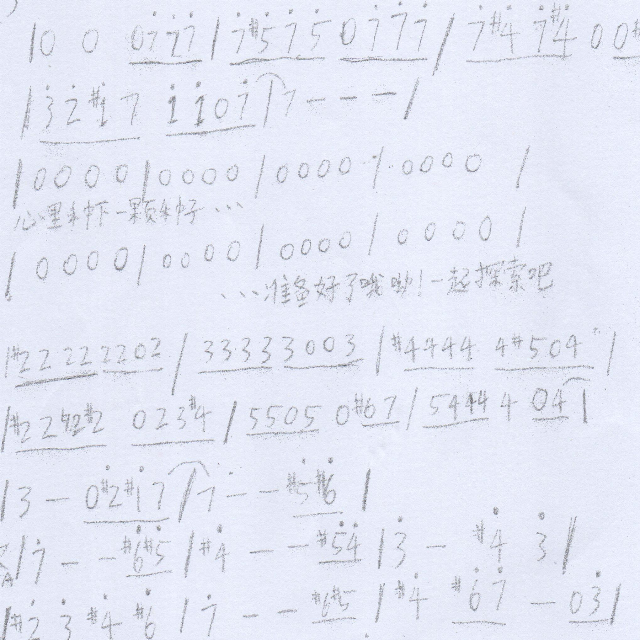 |0 0 0777|7#575 0777/7#4 7#4 00
|32#17 1107|7---/
|0000|0000|0000/0000|
|0000|0000|0000|0000|
准备好了哦呦!一起探索吧
|#2222 2202/3333 3003|#4444 4#504|
|#22 42#2 023#4|5505 0#67/5444 4 04|
|3-0#2#17|7--#5#6|
|7--#6#5|#4--#54|3-#4 3|
|#23#4#6|7--#6#5|#4 #67-03|